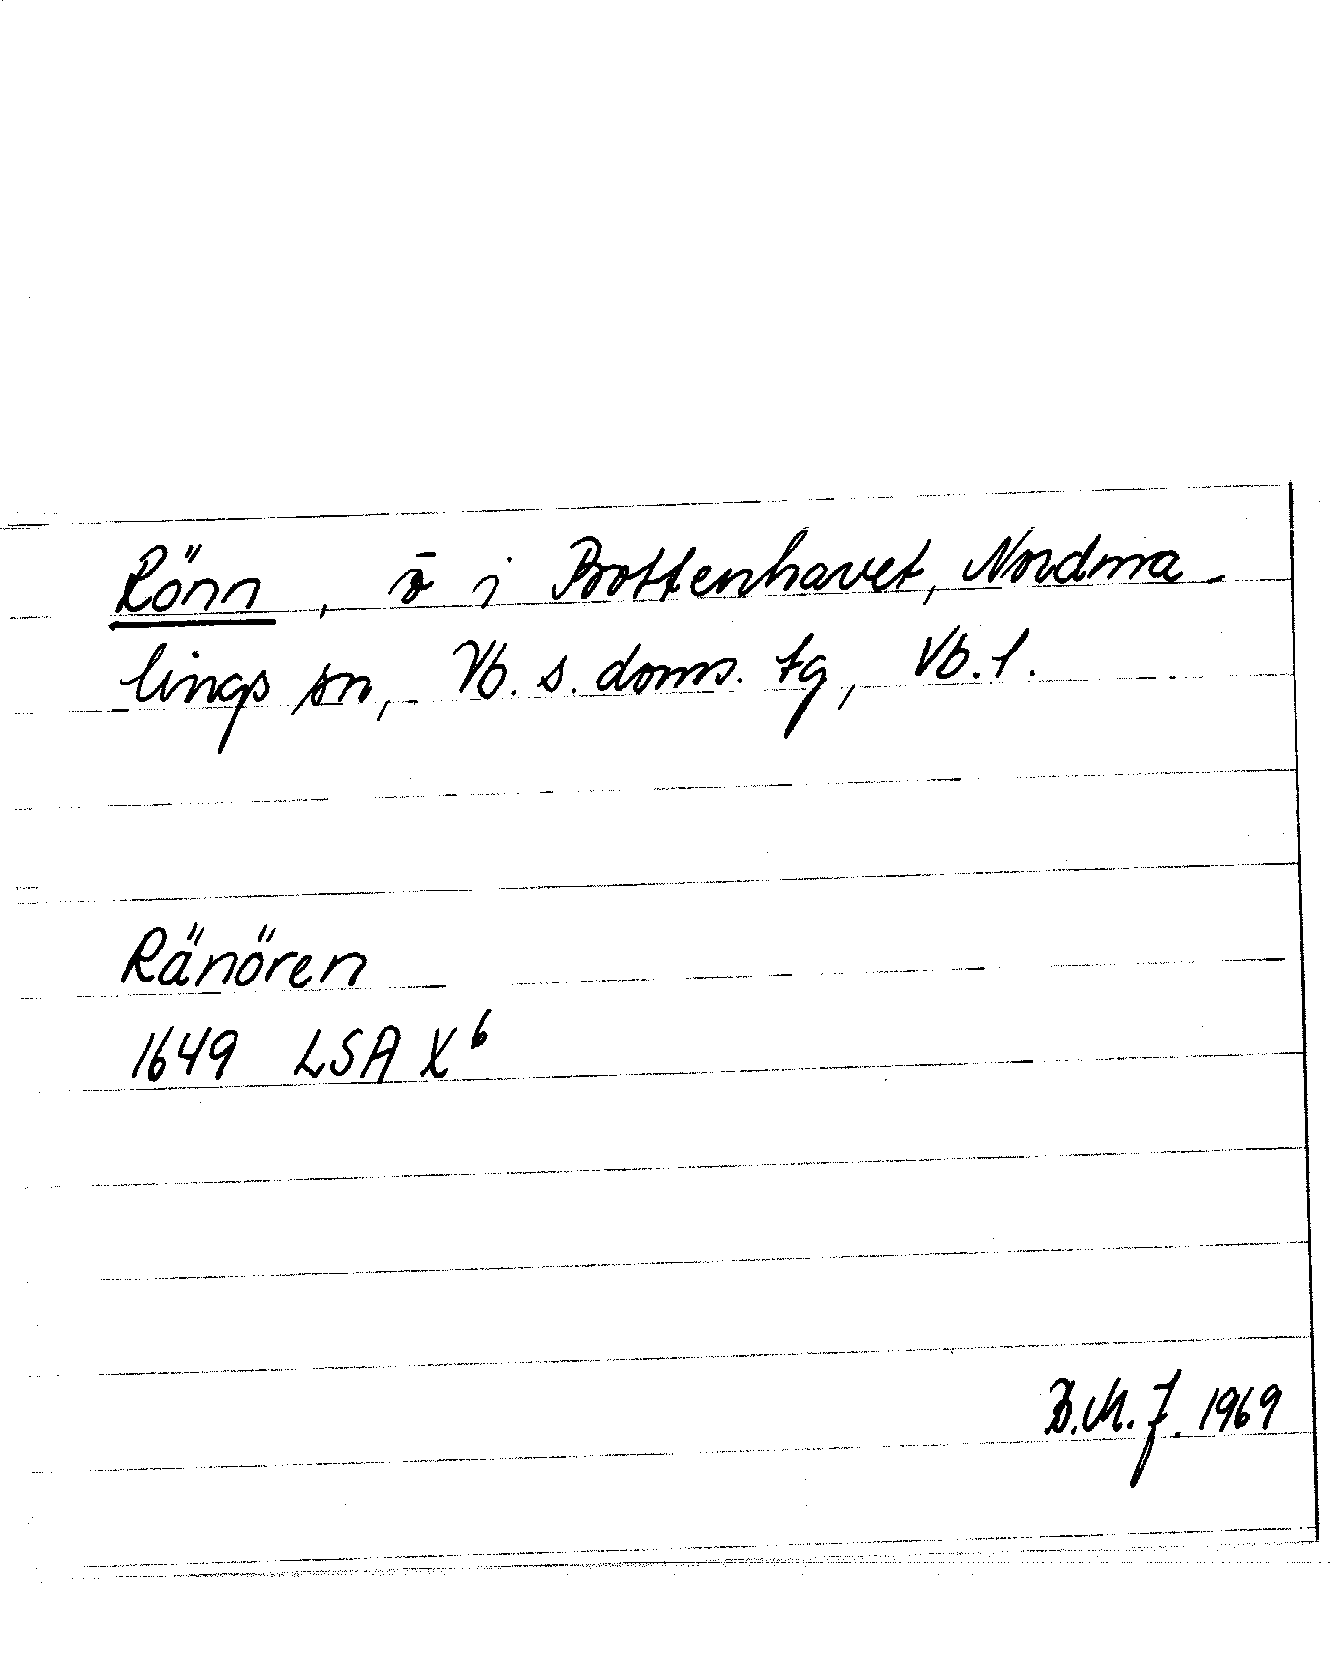 Rönn, ö i Bottenhavet, Nordma-
lings sn, Vb. s. doms. tg, Vb. l.
Ränören
1649 LSA X⁶
B.M.J. 1969